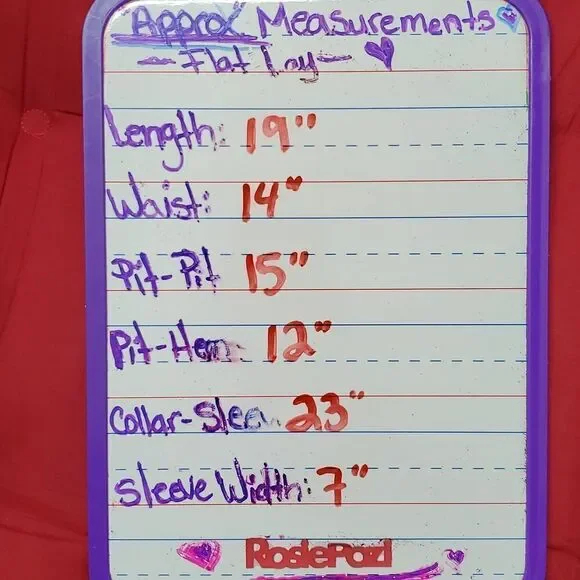 Approx Measurements
-Flat Lay-
Length: 19"
Waist: 14"
Pit-Pit 15"
Pit-Hem 12"
Collar-Slee 23"
Sleeve Width: 7"
RosiePozl